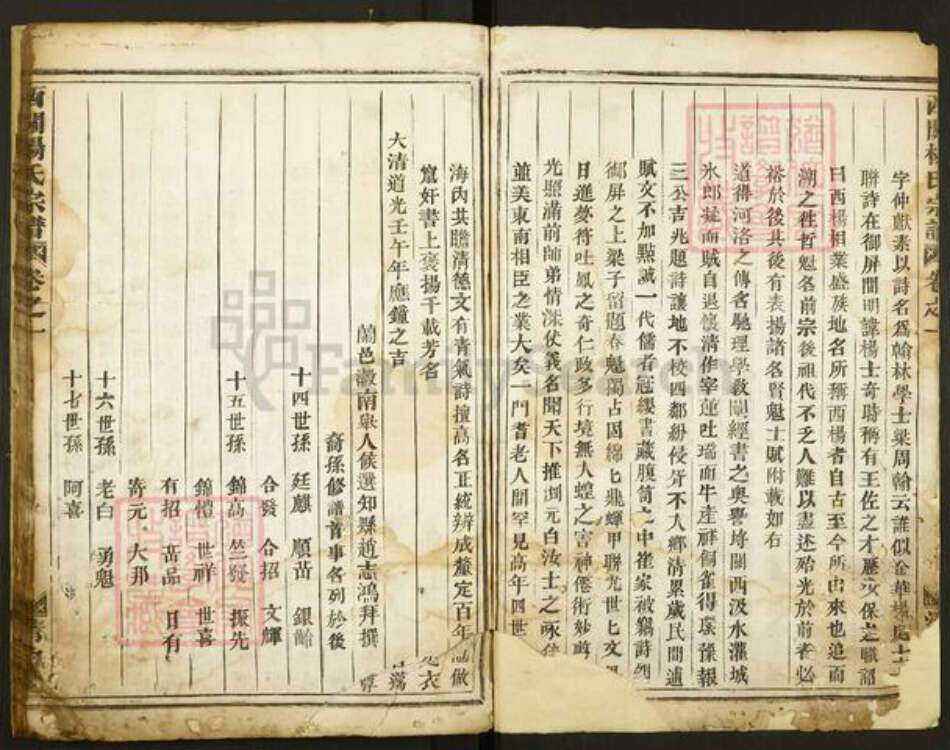 西關楊氏宗譜 卷之一
字仲猷素以詩名爲翰林學士梁周翰云誰似金華楊處士
聯詩在御屏間明諱楊士奇時稱有王佐之才歷 保之職詔
曰西楊相業盛族地名所稱西楊者自古至今所由來也追而
溯之徃哲魁名前宗後祖代不乏人難以盡述殆光於前者必
裕於後其後有表揚諸名賢魁士賦附載如右
道得河洛之傳含馳理學敎闡經書之奥譽垮關西汲水灌城
氷郎 而賊自退懷清作宰蓮吐瑞而牛產祥銅雀得 豫報
三公吉兆題詩讓地不校四鄰紛侵牙不入鄉清累歲民間逋
賦文不加點誠一代儒者冠纓書藏腹笥之中崔家被竊詩列
御屏之上梁子留題春魁獨占因綿七 蟬甲聯光世匕文
日進夢符吐鳳之奇仁政多行境無大蝗之害神倦術妙
光照滿前師弟情深仗義名聞天下推 元白汝士之
萐美東南相臣之業大矣一門耆老人間罕見高年四世
海內共瞻清德文有青氣詩擅高名正統辨成釐定百年 做
窵奸書上褒揚千載芳名
大清道光壬午年應鐘之吉
蘭邑歲南奥人候選知縣趙志鴻拜撰
裔孫修譜首事名列於後
十四世孫 廷麒 順苗 銀
合發 合招 文輝
十五世孫 錦高 竺發 振先
錦禮 世祥 世喜
有招 苗品 日有
寄元 大那
十六世孫 老白 勇魁
十七世孫 阿喜
西關楊氏宗譜 卷之一
FamilySearch